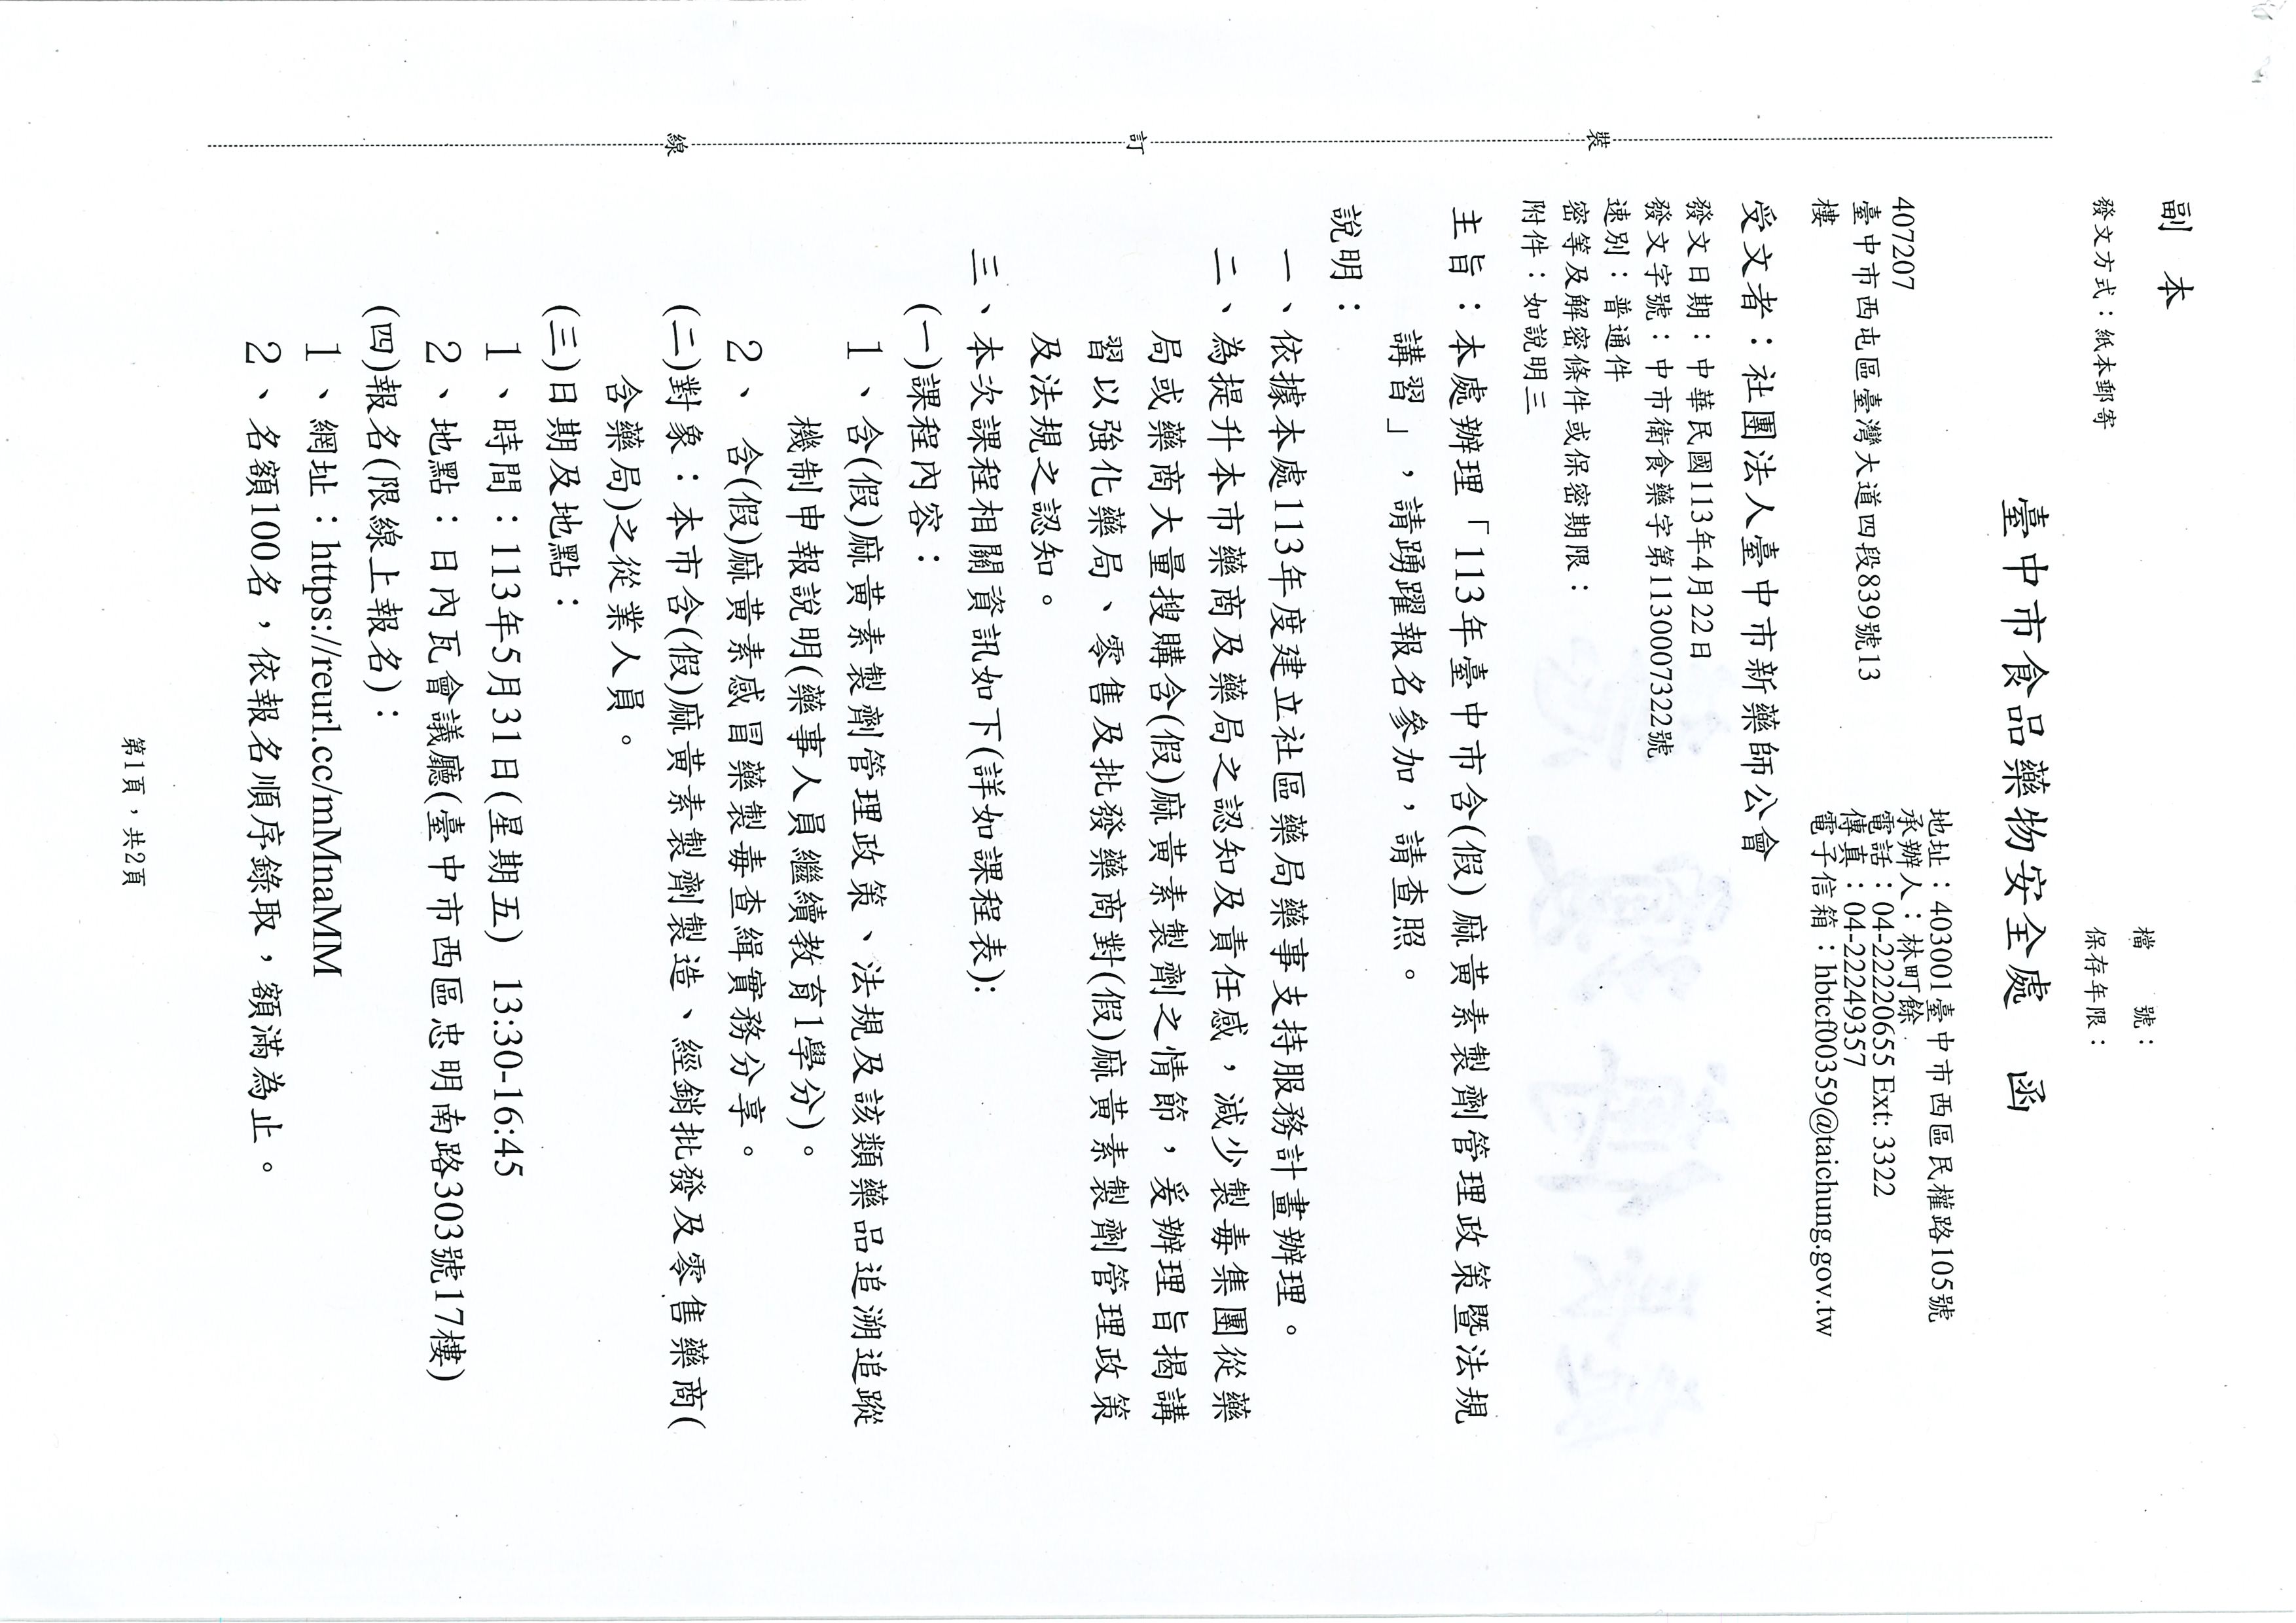 副本
檔　　號：
保存年限：
發文方式：紙本郵寄
臺中市食品藥物安全處　函
地址：403001臺中市西區民權路105號
承辦人：林町餘
電話：04-22220655 Ext: 3322
傳真：04-22249357
電子信箱：hbtcf00359@taichung.gov.tw
407207
臺中市西屯區臺灣大道四段839號13
樓
受文者：社團法人臺中市新藥師公會
發文日期：中華民國113年4月22日
發文字號：中市衛食藥字第1130007322號
速別：普通件
密等及解密條件或保密期限：
附件：如說明三
主旨：本處辦理「113年臺中市含(假) 麻黃素製劑管理政策暨法規
講習」，請踴躍報名參加，請查照。
說明：
一、依據本處113年度建立社區藥局藥事支持服務計畫辦理。
二、為提升本市藥商及藥局之認知及責任感，減少製毒集團從藥
局或藥商大量搜購含(假)麻黃素製劑之情節，爰辦理旨揭講
習以強化藥局、零售及批發藥商對(假)麻黃素製劑管理政策
及法規之認知。
三、本次課程相關資訊如下(詳如課程表)：
(一)課程內容：
1、含(假)麻黃素製劑管理政策、法規及該類藥品追溯追蹤
機制申報說明(藥事人員繼續教育1學分)。
2、 含(假)麻黃素感冒藥製毒查緝實務分享。
(二)對象：本市含(假)麻黃素製劑製造、經銷批發及零售藥商(
含藥局)之從業人員。
(三)日期及地點：
1、時間：113年5月31日(星期五) 13:30-16:45
2、地點：日內瓦會議廳(臺中市西區忠明南路303號17樓)
(四)報名(限線上報名)：
1、網址：https://reurl.cc/mMnaMM
2、名額100名，依報名順序錄取，額滿為止。
裝
訂
線
第1頁，共2頁